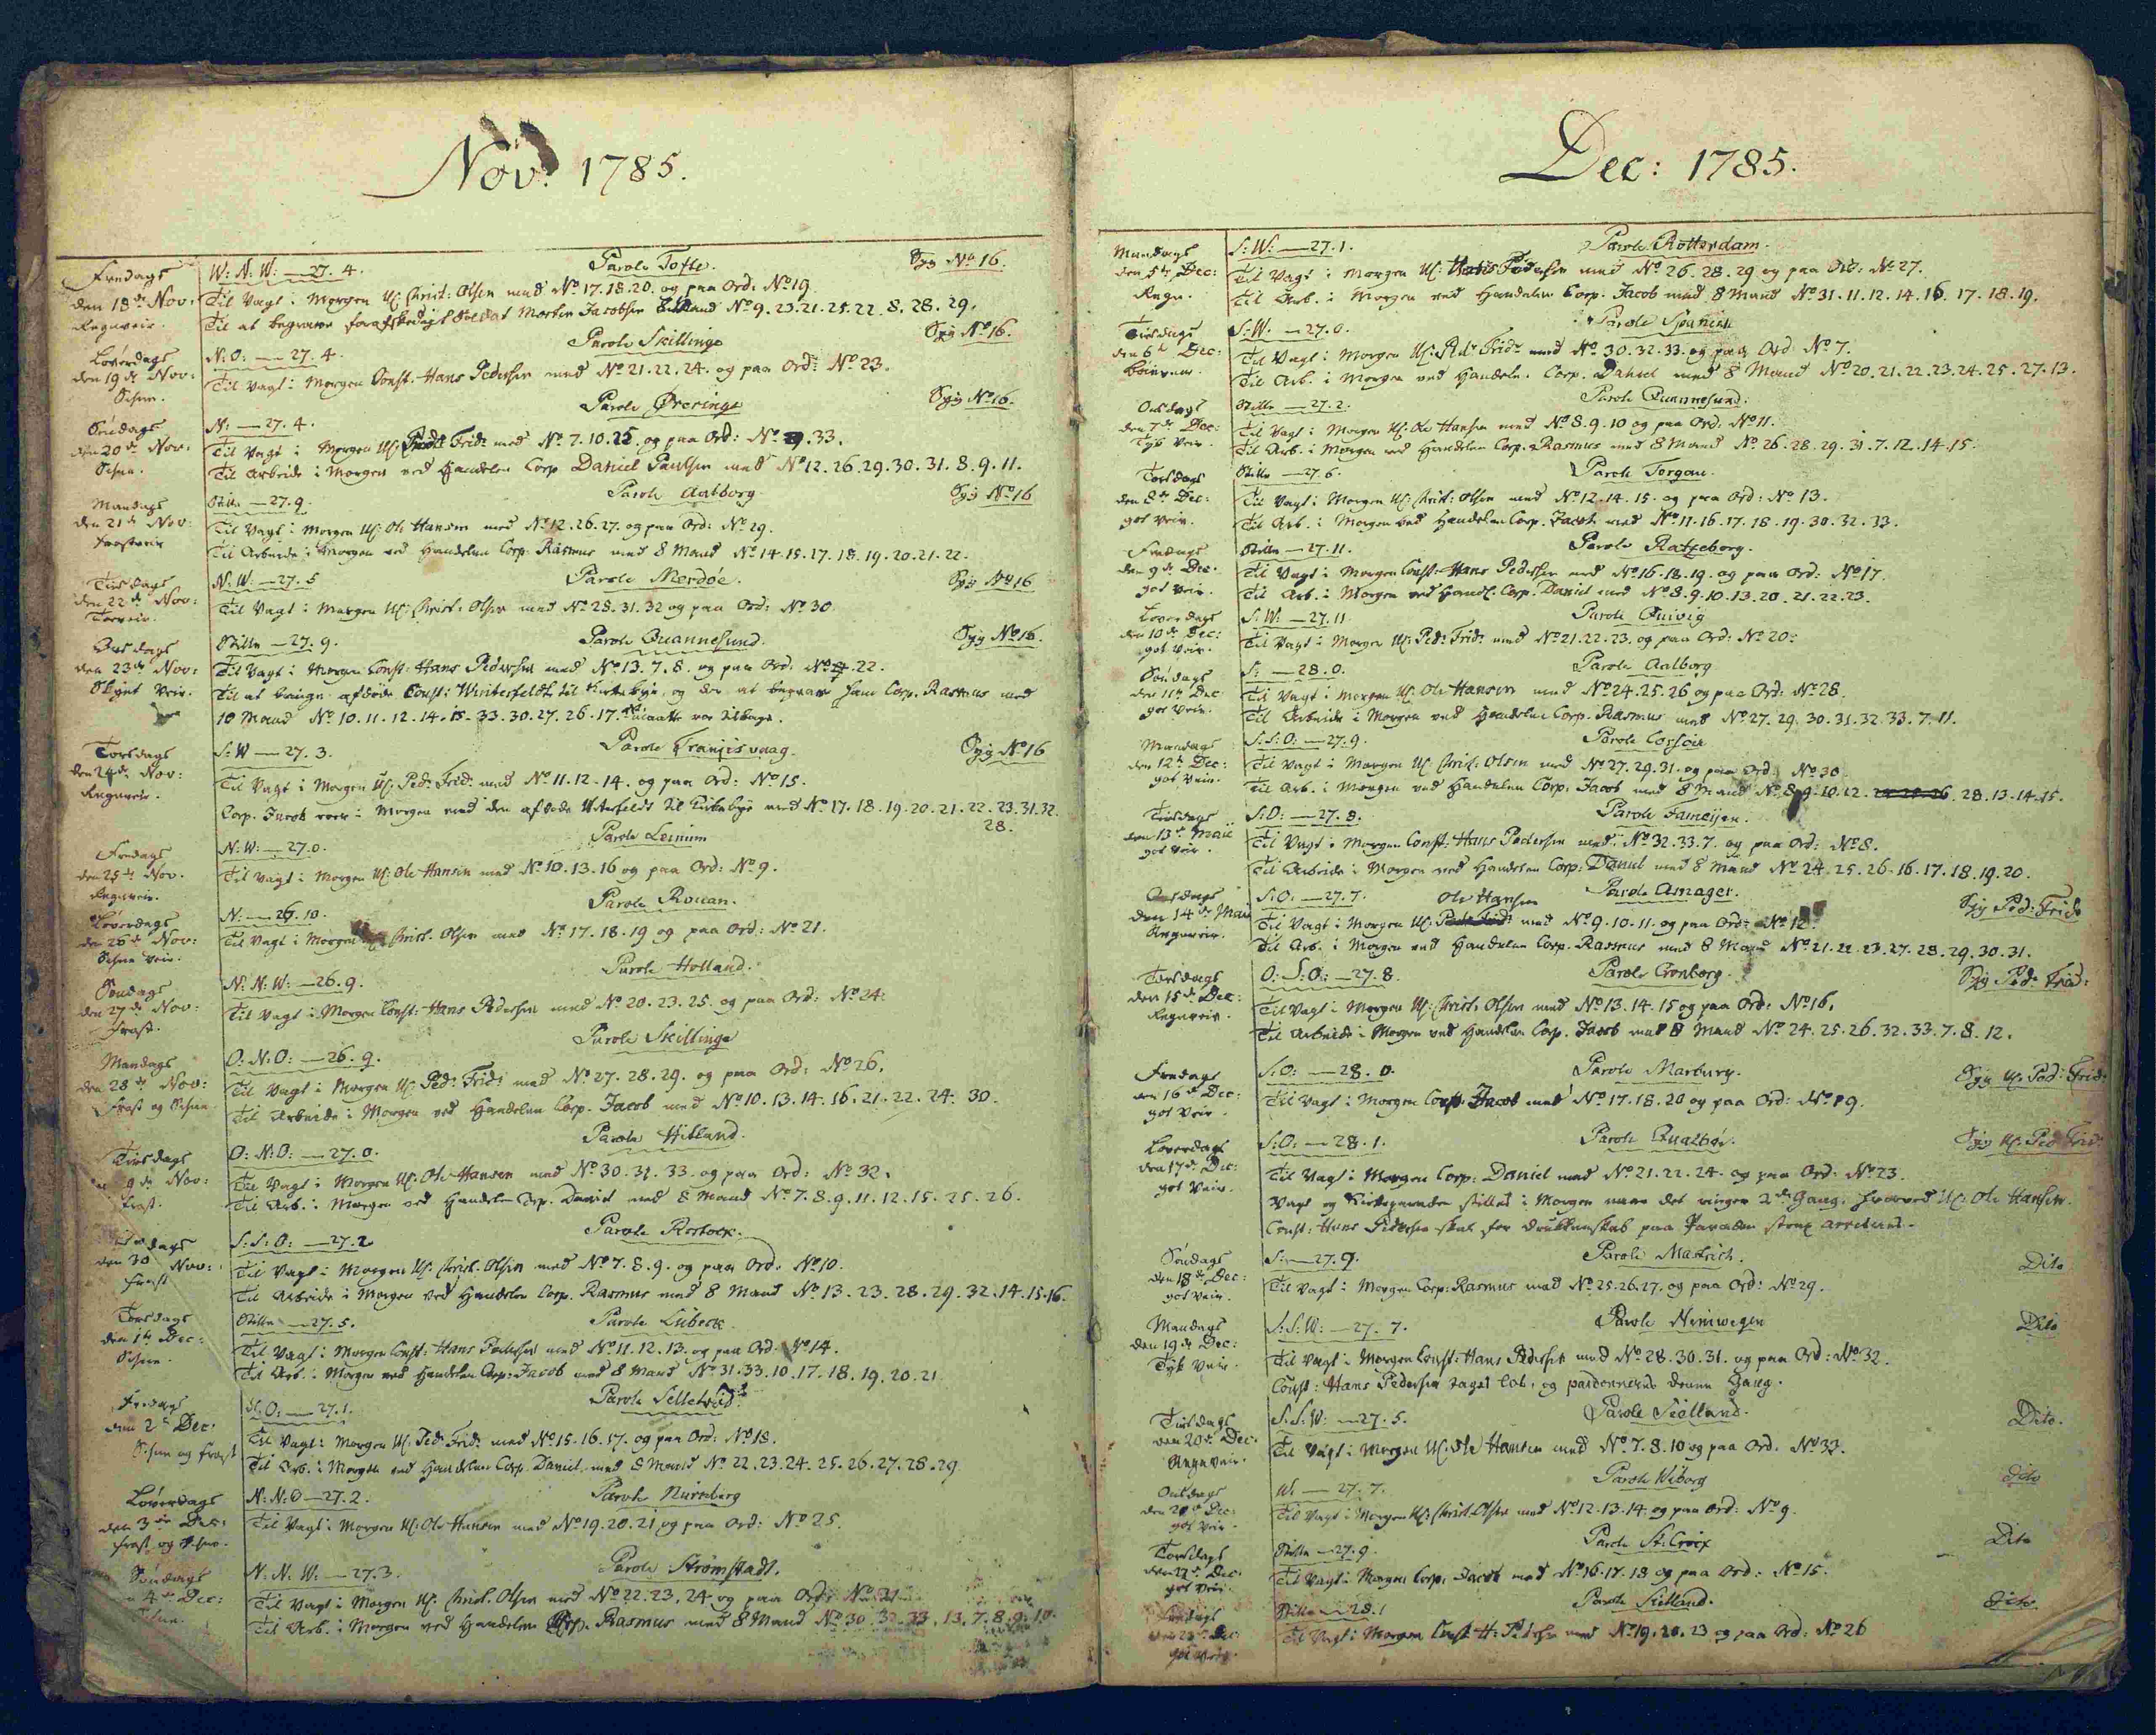 Nov: 1785.
Fredags
den 18de Nov:
Regnveir.
W: N. W: — 27. 4.
Parole Tofte.
Syg No 16.
Til Vagt i Morgen Uf: Christ: Olsen med No 17. 18. 20. og paa Ord: No 19
Til at begrave forafskediget Soldat Morten Jacobsen Mand No 9. 23. 21. 25. 22. 8. 28. 29.
Loverdags
den 19de Nov:
Schne.
N. O: — 27. 4.
Parole Skillinge
Syg No 16.
Til Vagt i Morgen Const. Hans Pedersen med No 21. 22. 24. og paa Ord: No 23.
Søndags
den 20de Nov:
Schne.
N: — 27. 4.
Parole Øreringe
Syg No 16.
Til Vagt i Morgen Uf: Frid: med No 7. 10. 25. og paa Ord: No 33.
Til Arbeide i Morgen ved Handelen Corp Daniel Paulsen med No 12. 26. 29. 30. 31. 8. 9. 11.
Mandags
den 21de Nov:
Frostveir
Stille — 27. 9.
Parole Aalborg
Syg No 16
Til Vagt i Morgen Uf: Ole Hansen med No 12. 26. 27. og paa Ord: No 29.
Til Arbeide i Morgen ved Handelen Corp: Rasmus med 8 Mand No 14. 15. 17. 18. 19. 20. 21. 22.
Tirsdags
den 22de Nov:
Toeveir.
N: W: — 27. 5
Parole Merdøe.
Syg No 16
Til Vagt i Morgen Uf: Christ: Olsen med No 28. 31. 32 og paa Ord: No 30
Onsdags
den 23de Nov:
Skyet Veir.
Stille — 27. 9.
Parole Quannesund.
Syg No 16.
Til Vagt i Morgen Const: Hans Pedersen med No 13. 7. 8. og paa Ord. No 22.
Til at bringe afdøde Const: Winterfeldt til Kirkebye, og der at begrave ham Corp. Rasmus med
10 Mand No 10. 11. 12. 14. 15. 33. 30. 27. 26. 17. maatte roe tilbage.
Torsdags
den 24de Nov:
Regnveir.
S: W — 27. 3.
Parole Franzisvaag.
Syg No 16
Til Vagt i Morgen Uf. Ped: Frid: med No 11. 12. 14. og paa Ord: No 15.
Corp. Jacob roer i Morgen med den afdøde til Kirkebye med No 17. 18. 19. 20. 21. 22. 23. 31. 32.
28.
Fredags
den 25de Nov.
Regnveir.
N. W: — 27. 0.
Parole Leinum
Til Vagt i Morgen Uf: Ole Hansen med No 10. 13. 16 og paa Ord: No 9.
Løverdags
den 26de Nov:
Schne Veir.
N: — 26. 10.
Parole Rouan.
Til Vagt i Morgen Christ. Olsen med No 17. 18. 19 og paa Ord: No 21.
Søndags
den 27de Nov:
Frost.
N: N: W: — 26. 9.
Parole Holland.
Til Vagt i Morgen Const: Hans Pedersen med No 20. 23. 25. og paa Ord: No 24.
Mandags
den 28de Nov:
Frost og Schne
O: N: O: — 26. 9.
Parole Skillinge
Til Vagt i Morgen Uf. Ped: Frid: med No 27. 28. 29. og paa Ord: No 26.
Til Arbeide i Morgen ved Handelen Corp. Jacob med No 10. 13. 14. 16. 21. 22. 24. 30.
Tirsdags
9de Nov:
Frost.
O: N: O: — 27. 0.
Parole Hitland.
Til Vagt i Morgen Uf. Ole Hansen med No 30. 31. 33. og paa Ord: No 32.
Til Arb. i Morgen ved Handelen Corp. Daniel med 8 Mand No 7. 8. 9. 11. 12. 15. 25. 26.
den 30 Nov:
Frost
S: S: O: — 27. 2
Parole Rostock.
Til Vagt i Morgen Uf. Christ. Olsen med No 7. 8. 9. og paa Ord. No 10.
Til Arbeide i Morgen ved Handelen Corp. Rasmus med 8 Mand No 13. 23. 28. 29. 32. 14. 15. 16.
Torsdags
den 1te Dec:
Schne.
Stille — 27. 5.
Parole Lübeck.
Til Vagt i Morgen Const: Hans Pedersen med No 11. 12. 13. og paa Ord. No 14.
Til Arb. i Morgen ved Handelen Corp: Jacob med 8 Mand No 31. 33. 10. 17. 18. 19. 20. 21
Fredags
den 2de Dec:
Schne og Frost
O: — 27. 1.
Parole
Til Vagt i Morgen Uf. Ped: Frid: med No 15. 16. 17. og paa Ord: No 18.
Til Arb. i Morgen ved Handelen Corp. Daniel med 8 Mand No 22. 23. 24. 25. 26. 27. 28. 29
Løverdags
den 3de Dec:
Frost og Schne.
N: N: O — 27. 2.
Parole Nürnberg
Til Vagt i Morgen Uf: Ole Hansen med No 19. 20. 21 og paa Ord: No 25.
Søndags
4de Dec:
N: N. W: — 27. 3.
Parole Strømstadt.
Til Vagt i Morgen Uf: Christ. Olsen med No 22. 23. 24 og paa Ord: No 31
Til Arb. i Morgen ved Handelen Corp. Rasmus med 8 Mand No 30. 32. 33. 13. 7. 8. 9. 10.
Dec: 1785.
Mandags
den 5te Dec:
Regn.
S: W: — 27. 1.
Parole Rotterdam.
Til Vagt i Morgen Uf: Hans Pedersen med No 26. 28. 29 og paa Ord: No 27.
Til Arb. i Morgen ved Handelen Corp. Jacob med 8 Mand No 31. 11. 12. 14. 16. 17. 18. 19.
Tirsdags
den 6te Dec:
S: W. — 27. 0.
Parole Spanien
Til Vagt i Morgen Uf: Ped: Frid: med No 30. 32. 33. og paa Ord No 7.
Til Arb. i Morgen ved Handeln. Corp. Daniel med 8 Mand No 20. 21. 22. 23. 24. 25. 27. 13.
Onsdags
den 7de Dec:
Tyk Veir.
Stille — 27. 2.
Parole Quannesund.
Til Vagt i Morgen Uf. Ole Hansen med No 8. 9. 10 og paa Ord. No 11.
Til Arb. i Morgen ved Handelen Corp. Rasmus med 8 Mand No 26. 28. 29. 31. 7. 12. 14. 15.
Torsdags
den 8de Dec:
got Veir.
Stille — 27. 6.
Parole Torgau.
Til Vagt i Morgen Uf: Christ: Olsen med No 12. 14. 15. og paa Ord: No 13.
Til Arb. i Morgen ved Handelen Corp. Jacob med No 11. 16. 17. 18. 19. 30. 32. 33.
Fredags
den 9de Dec.
got Veir.
Stille — 27. 11.
Parole Ratzeborg.
Til Vagt i Morgen Const: Hans Pedersen med No 16. 18. 19. og paa Ord: No 17.
Til Arb. i Morgen ved Handl. Corp. Daniel med No 8. 9. 10. 13. 20. 21. 22. 23.
Loverdags
den 10de Dec:
got Veir.
S: W: — 27. 11
Parole Quivig
Til Vagt i Morgen Uf: Ped: Frid: med No 21. 22. 23. og paa Ord: No 20:
Søndags
den 11te Dec
got Veir.
S: — 28. 0.
Parole Aalborg.
Til Vagt i Morgen Uf. Ole Hansen med No 24. 25. 26 og paa Ord: No 28.
Til Arbeide i Morgen ved Handelen Corp. Rasmus med No 27. 29. 30. 31. 32. 33. 7. 11.
Mandags
den 12te Dec:
got Veir.
S: S: O: — 27. 9.
Parole Corsoer
Til Vagt i Morgen Uf Christ. Olsen med No 27. 29. 31. og paa Ord: No 30
Til Arb. i Morgen ved Handelen Corp. Jacob med 8 Mand No 8. 9. 10. 12. 28. 13. 14. 15.
Tirsdags
den 13de Maii
got Veir.
S: O: — 27. 8.
Parole Famøijen.
Til Vagt i Morgen Const: Hans Pedersen med No 32. 33. 7. og paa Ord: No 8.
Til Arbeide i Morgen ved Handelen Corp: Daniel med 8 Mand No 24. 25. 26. 16. 17. 18. 19. 20.
Onsdags
den 14de Maii
Regnveir.
S: O: — 27. 7.
Ole Hansen
Parole Amager.
Syg Ped: Frid:
Til Vagt i Morgen Uf. med No 9. 10. 11. og paa Ord: No 12.
Til Arb. i Morgen ved Handelen Corp. Rasmus med 8 Mand No 21. 22. 23. 27. 28. 29. 30. 31.
Torsdags
den 15de Dec:
Regnveir.
O: S: O: — 27. 8.
Parole Cronborg.
Syg Ped: Frid:
Til Vagt i Morgen Uf: Christ. Olsen med No 13. 14. 15 og paa Ord: No 16.
Til Arbeide i Morgen ved Handelen Corp. Jacob med 8 Mand No 24. 25. 26. 32. 33. 7. 8. 12.
Fredags
den 16de Dec:
got Veir.
S: O: — 28. 0.
Parole Marburg.
Syg Uf. Ped: Frid:
Til Vagt i Morgen Corp. Jacob med No 17. 18. 20 og paa Ord: No 19.
Loverdags
den 17de Dec:
got Veir.
S: O: — 28. 1.
Parole Qualbøe.
Syg Uf. Ped: Frid:
Til Vagt i Morgen Corp: Daniel med No 21. 22. 24. og paa Ord: No 23.
Vagt og Kirkeparade stilles i Morgen naar det ringer 2den Gang, hvorved Uf: Ole Hansen.
Const: Hans Pedersen skal for Drukkenskab paa Paraden strax arresteres.
Søndags
den 18de Dec:
got Veir.
S: — 27. 9.
Parole Mastrich.
Dito
Til Vagt i Morgen Corp: Rasmus med No 25. 26. 27. og paa Ord: No 29.
Mandags
den 19de Dec:
Tyk Veir.
S: S: W: — 27. 7.
Parole Nimwegen
Dito
Til Vagt i Morgen Const: Hans Pedersen med No 28. 30. 31. og paa Ord: No 32.
Const: Hans Pedersen taget løs, og pardonneres denne Gang.
Tirsdags
den 20de Dec.
Regnveir.
S: S: W: — 27. 5.
Parole Siølland.
Dito.
Til Vagt i Morgen Uf. Ole Hansen med No 7. 8. 10 og paa Ord. No 33.
Onsdags
den 21de Dec:
got Veir.
W: — 27. 7.
Parole Wiborg
Dito
Til Vagt i Morgen Uf: Christ. Olsen med No 12. 13. 14. og paa Ord: No 9.
Torsdags
den 22de Dec:
got Veir.
Stille — 27. 9.
Parole St: Croix
Dito
Til Vagt i Morgen Corp. Jacob med No 16. 17. 18 og paa Ord: No 15.
Fredags
den 23de Dec:
got Veir.
Stille — 28. 1
Parole Siølland.
Dito
Til Vagt i Morgen Const H: Pedersen med No 19. 20. 23 og paa Ord: No 26